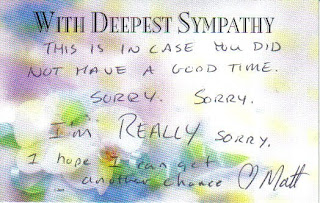 WITH DEEPEST SYMPATHY
THIS IS IN CASE YOU DID
NOT HAVE A GOOD TIME.
SORRY. SORRY.
I'm REALLY SORRY.
I hope I can get
another chance ♡ Matt